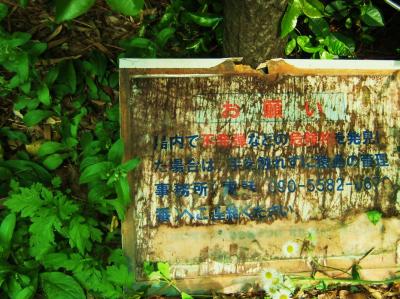 お願い
内で不発弾などの危険物を発見し
た場合は、手を触れずに 島の管理
事務所 電話 090-5582-067
番)へご連絡ください